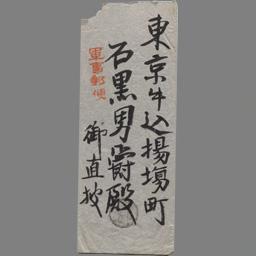 東京牛込揚場町
石黒男爵殿
御直披
軍事郵便